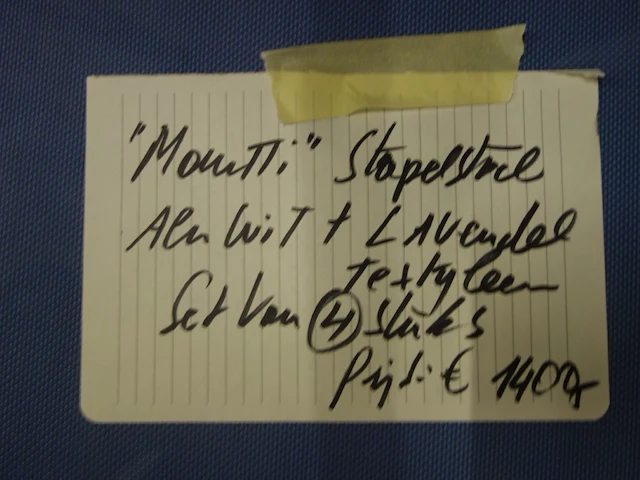 "Moretti" Stapelstoel
Alu Wit + LAVendel
Textyleen
Set Van 4 stuks
Prijs: € 1400,-